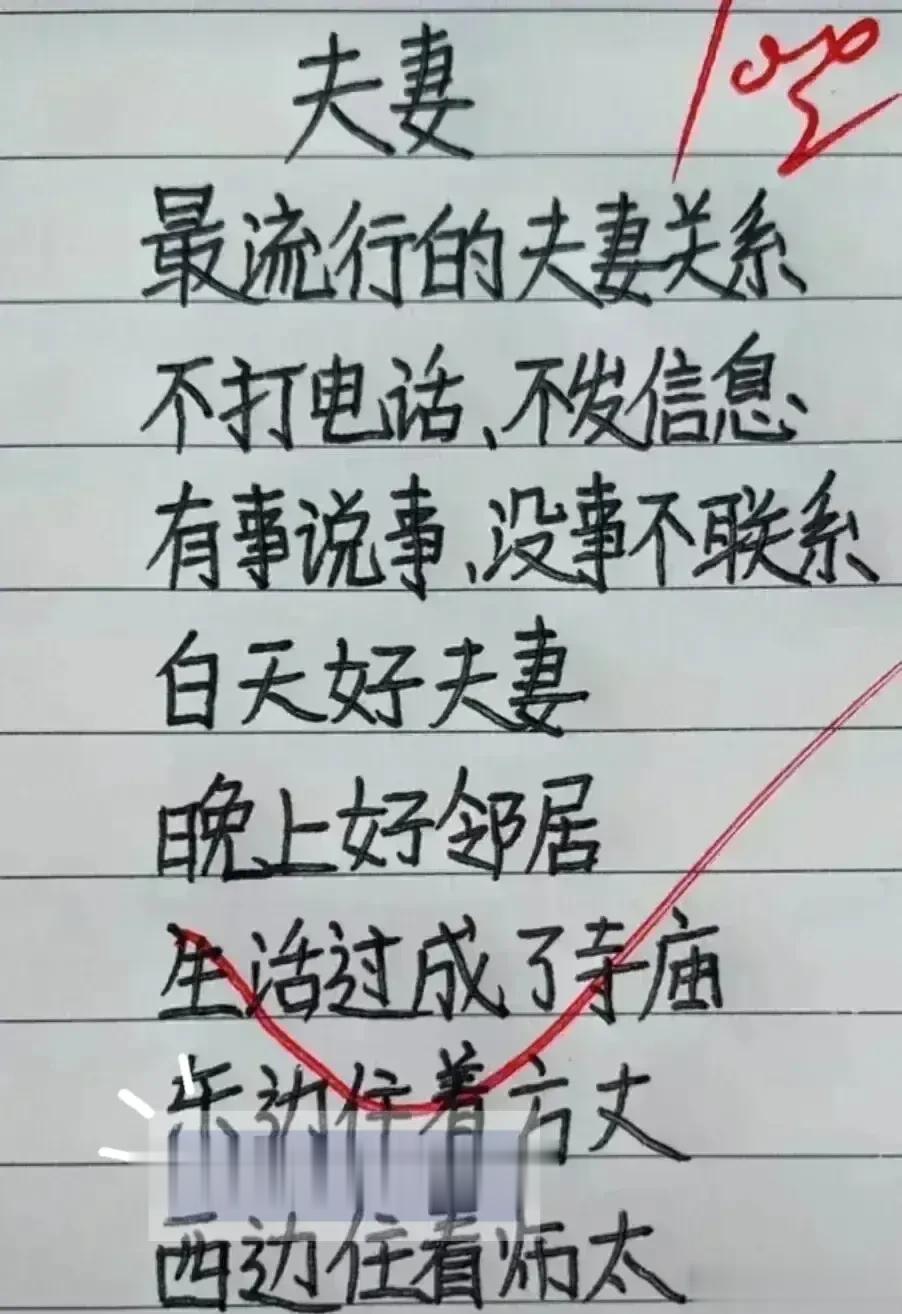 100
夫妻
最流行的夫妻关系
不打电话、不发信息、
有事说事、没事不联系
白天好夫妻
晚上好邻居
生活过成了寺庙
东边住着方丈
西边住着师太